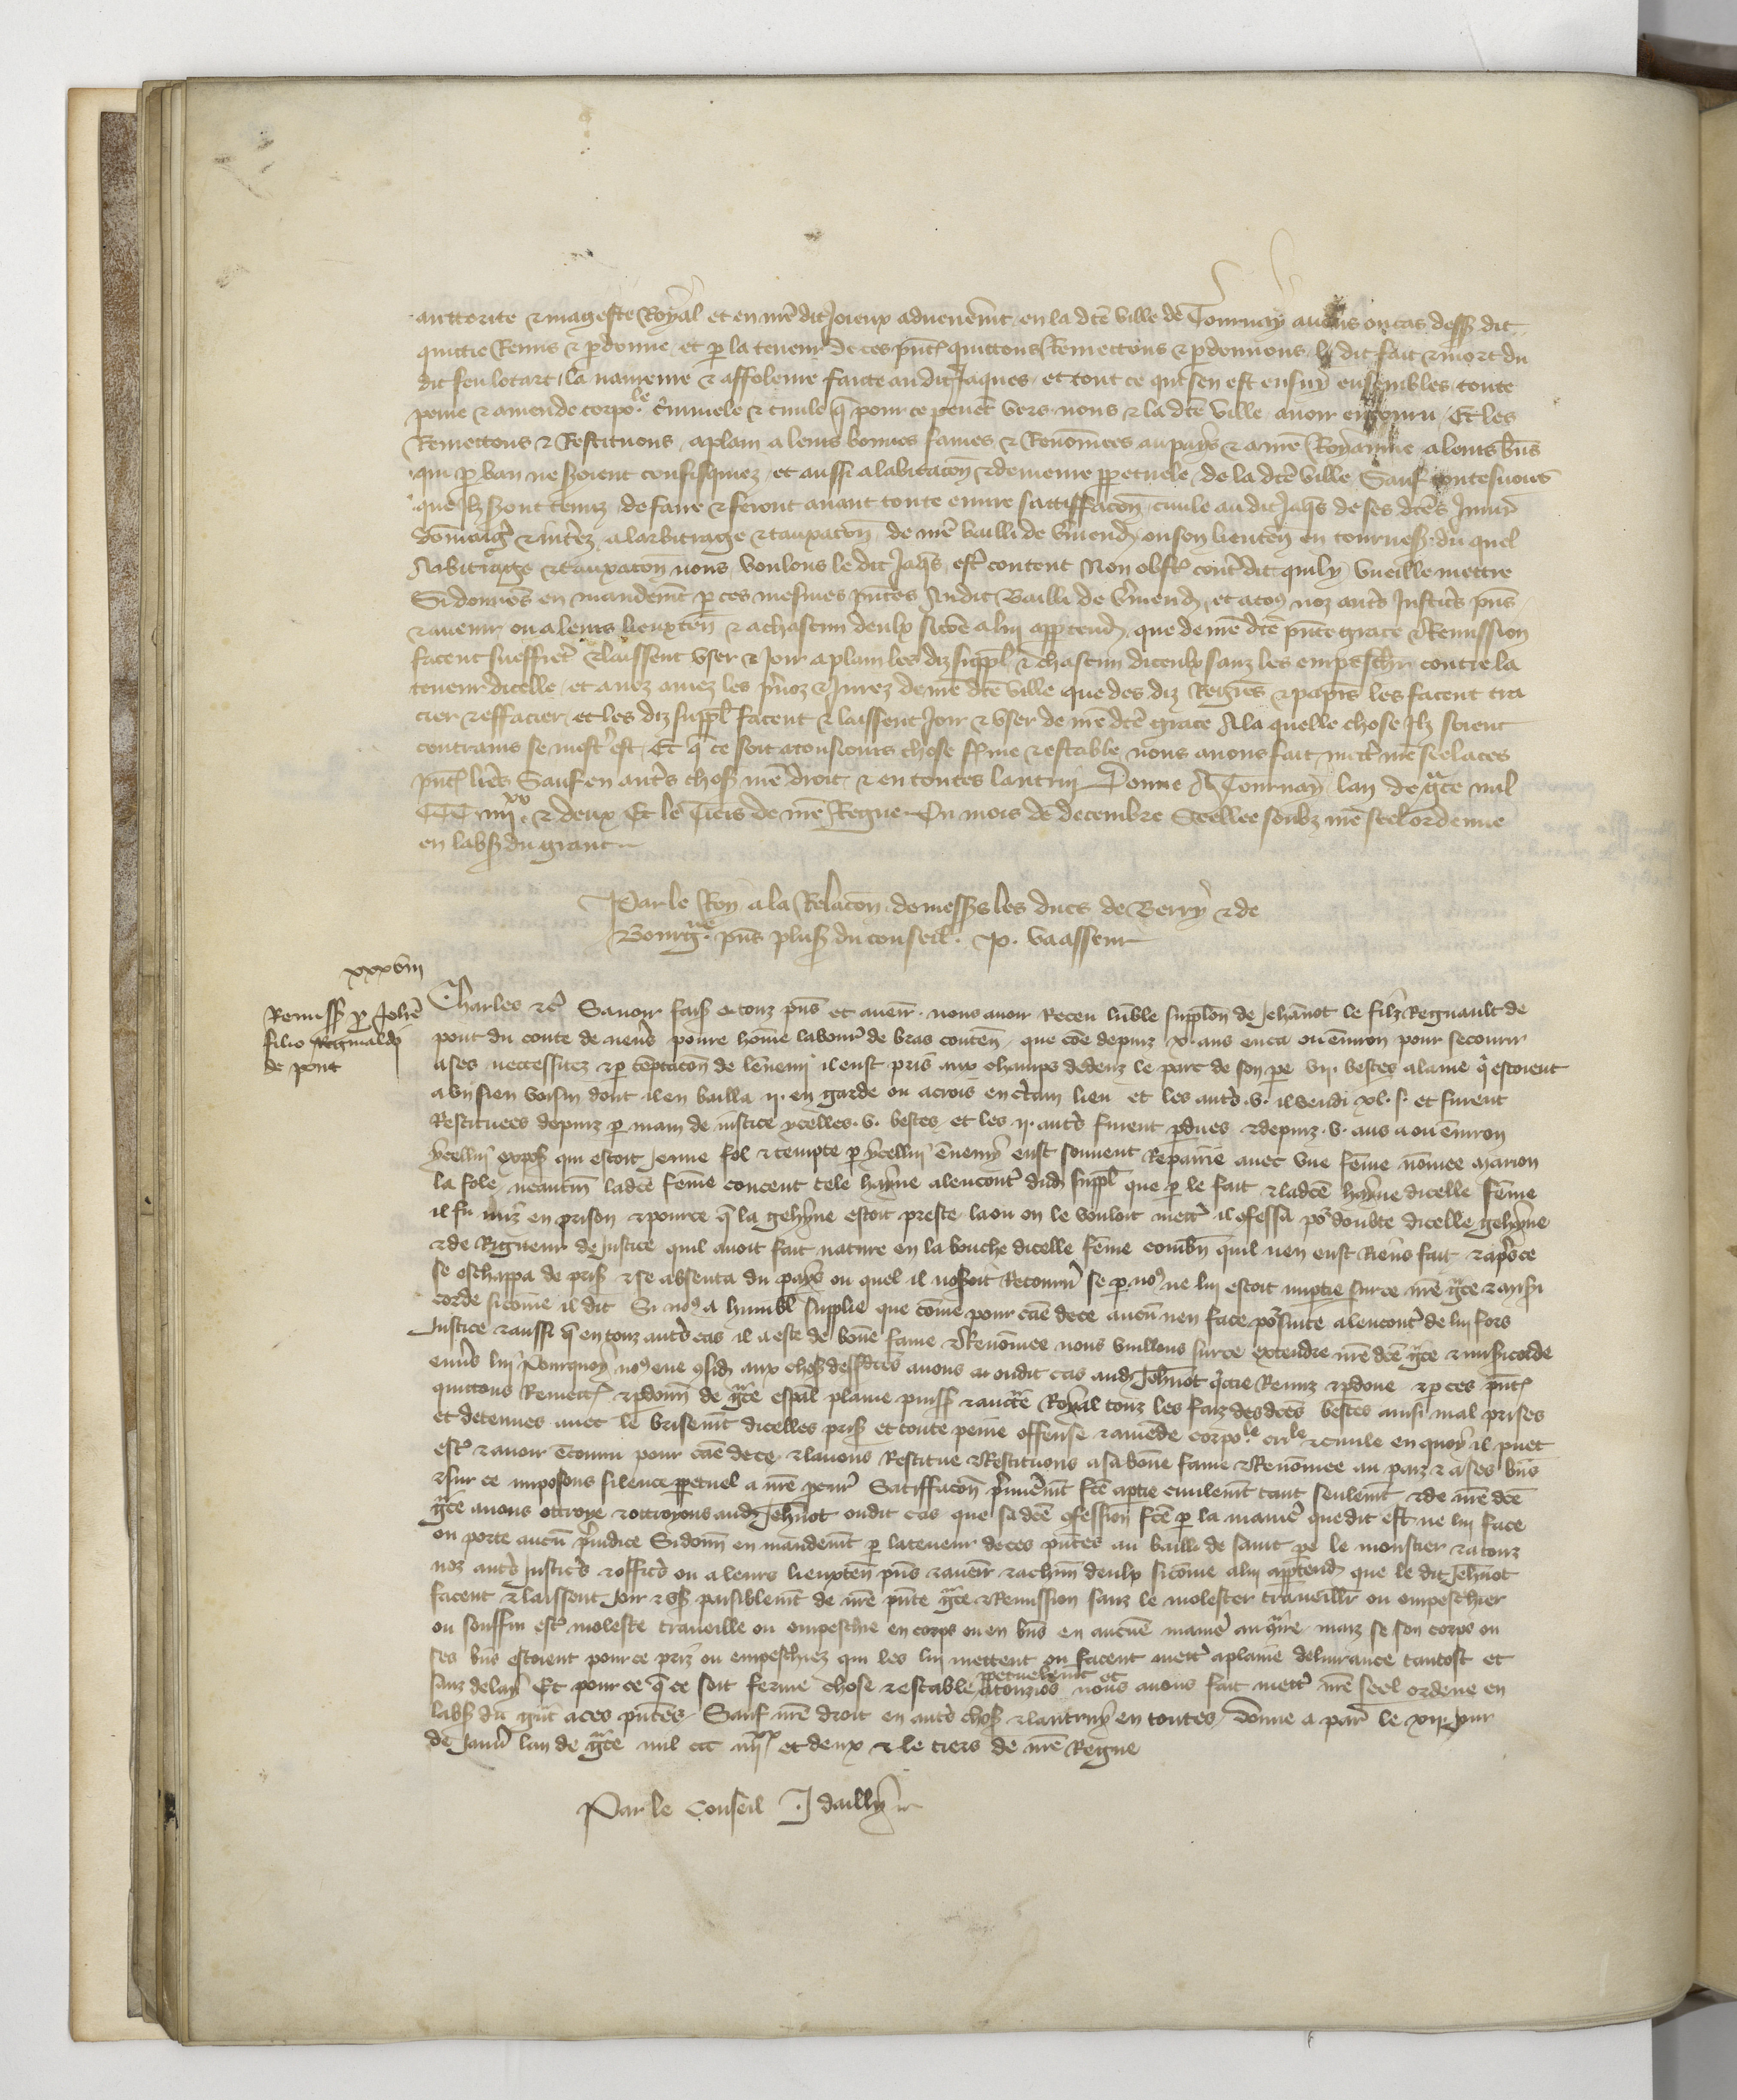 auttorite & mageste Royal et en nre dit Joieux aduenemt en la dce ville de Tournay auons ou cas dessus dit
quittie Remis & pdonne et p la teneur de ces pntes quittons Remettons & pdonnons le dit fait & mort du
dit feu lotart la naureure & affoleure faicte au dit Jaques et tout ce qui sen est ensuy ensembles toute
peine & amende corporele criminele & ciuile q pour ce peuent vers nous & la dce ville auoir encouru Et les
Remettons & Restituons aplain a leurs bonnes fames & Renomees au pays & a nre Royaume a leurs biens
qui p ban ne soient confisquiez et aussi a labitacon & demeure ppetuele de la dce ville Sauf
que Ilz sont tenuz de faire & feront auant toute euure sattiffacon ciuile au dit Jaqs de ses dces Iniur
domaige & interez a larbitrage & tauxacon de nre bailli de Vmend ou son lieuten en tournes du quel
Arbitrage & tauxacon nous voulons le dit Jaqs estre content Non obst contredit quil y vueille mettre
Si donnons en mandemt p ces mesmes pntes Au dit Bailli de Vmend et a tous noz autres Justiciers pns
& auenir ou a leurs lieuxten & a chascun deulx sicoe a lui apptend que de nre dce pnte grace & Remission
facent sueffret & laissent vser & Joir a plain les diz suppl & chascun diceulx sanz les empeschr contre la
teneur dicelle et a noz amez les puoz & Jurez de nre dce ville que des diz Regres & papirs les facent tra
cier & effacier et les diz suppl facent & laissent Joir & vser de nre dce grace A la quelle chose Ilz soient
contrains se mest est Et q ce soit a tousiours chose ferme & estable nous auons fait mettre nre seel a ces
pntes lres Sauf en autres choses nre droit & en toutes lautrui Donne A Tournay lan de gce mil
CCC iiiixx & deux Et le Tiers de nre Regne Ou mois de decembre Seellee soubz nre seel ordenne
en labs du grant
Par le Roy a la Relacon de mess les ducs de Berry & de
Bourgne pns pluss du conseil P. Vaasseur
xxxviii
Remiss p Johe
filio Reginaldi
de pont
Charles &c Sauoir fais a touz pns et auenir nous auoir Receu lumble supplon de Jehannot le filz Regnault de
pont du conte de neuers poure home labour de bras conten que coe depuiz x ans enca ou enuiron pour secourir
a ses neccessitez & p temptacon de lennemi il eust pris aux champs dedenz le parc de son pe vii bestes a laine q estoient
a vn sien voisin dont il en bailla ii en garde ou acrois en certain lieu et les autres v il vendi xl s et furent
Restituees depuiz p main de iustice ycelles v bestes et les ii autres furent pdues & depuiz v ans a ou enuiron
ycellui expos qui estoit jenne fol & tempte p ycellui ennemy eust souuent Repairie auec vne feme nomee Marion
la fole neantm ladce feme conceut tele hayne alencontre dud suppl que p le fait & ladce hayne dicelle feme
il fu miz en prison & pource q la gehyne estoit preste laou on le vouloit mettre il cofessa por doubte dicelle gehyne
& de Rigueur de Justice quil auoit fait nature en la bouche dicelle feme combn quil nen eust Riens fait & apres ce
se eschappa de pris & se absenta du pays ou quel il noseroit Retourn se p nous ne lui estoit impartie sur ce nre gce & misi
corde sicome il dit Si nous a humbl supplie que come pour cause de ce aucun nen face porsuite alencontre de lui fors
Justice & aussi q en touz autres cas il a este de bone fame & Renomee nous vuillons sur ce extendre nre dce gce & misicorde
enuers lui Pourquoy nous eue cosid aux choses dessdces auons ou dit cas aud Jehnot qctie Remiz & pdone & p ces pntes
quittons Remett & pdonn de gce espal plaine puiss & aucte Royal touz les faiz des dces bestes ainsi mal prises
et detenues auec le brisemt dicelles pris et toute peine offense & amede corpole crile & ciuile en quoy il puet
estre & auoir encouru pour cause de ce & lauons Restitue & Restituons a sa bone fame & Renomee au paiz & a ses bns
& sur ce imposons silence ppetuel a nre pcur Satiffacon prmieremt fce a ptie ciuilemt tant seulemt & de nre dce
gce auons ottroye & ottroyons aud Jehnot ou dit cas que sa dce cofession fce p la manier que dit est ne lui face
ou porte aucun preiudice Si donn en mandemt p la teneur de ces pntes au bailli de saint pe le moustier & a touz
noz autres Justiciers & officiers ou a leurs lieuxten pns & auenir & a chun deulx sicome a lui apptend que le dit Jehnot
facent & laissent Joir & vser paisiblemt de nre pnte gce & Remission sanz le molester trauaillir ou empeschier
ou souffrir estre moleste trauaille ou empeschie en corps ou en bns en aucune manier au contraire maiz se son corps ou
ses bns estoient pour ce priz ou empeschiez qui les lui mettent ou facent mettre a plaine deliurance tantost et
sanz delay Et pour ce q ce soit ferme chose & estable ppetuelemt et a touziors nous auons fait mettre nre seel ordene en
labs du gnt a ces pntes Sauf nre droit en autres choses & lautruy en toutes Donne a paris le xii jour
de Januier lan de gce mil ccc iiiixx et deux & le tiers de nre Regne
Par le conseil J dailly